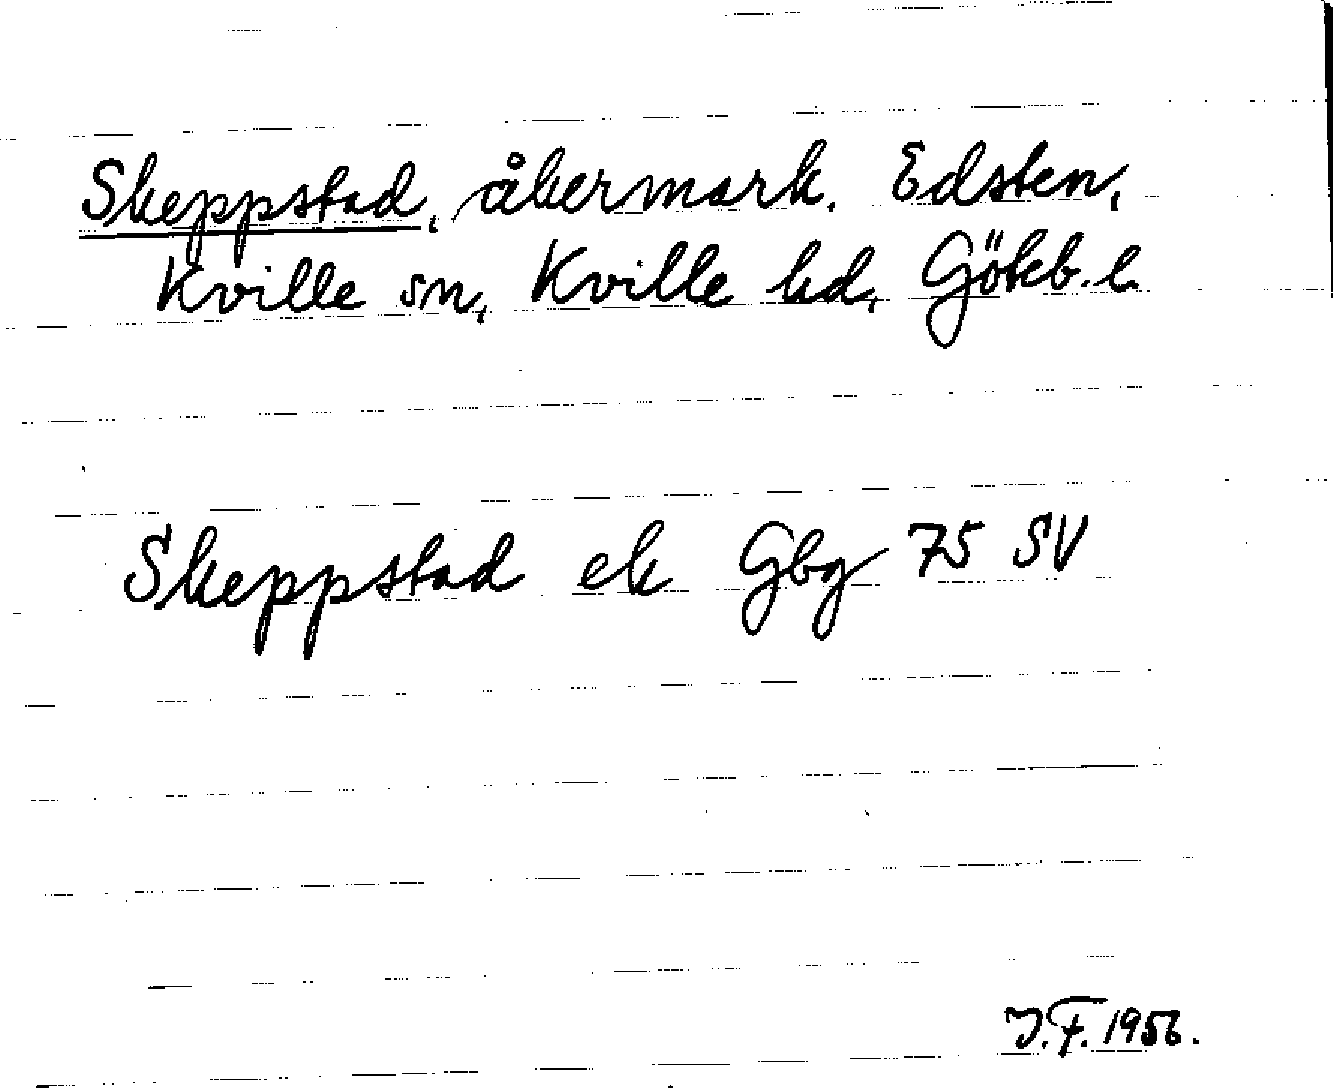 Skeppstad, åkermark. Edsten,
Kville sn, Kville hd, Gökb. l.
Skeppstad ek Gbg 75 SV
J.F. 1956.